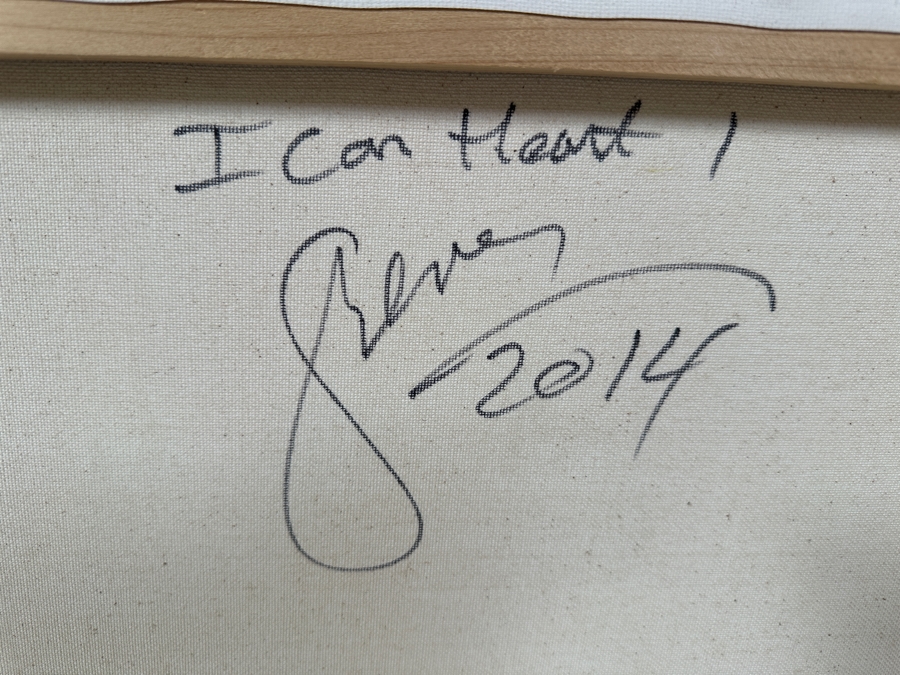 I Can Heart 1
2014